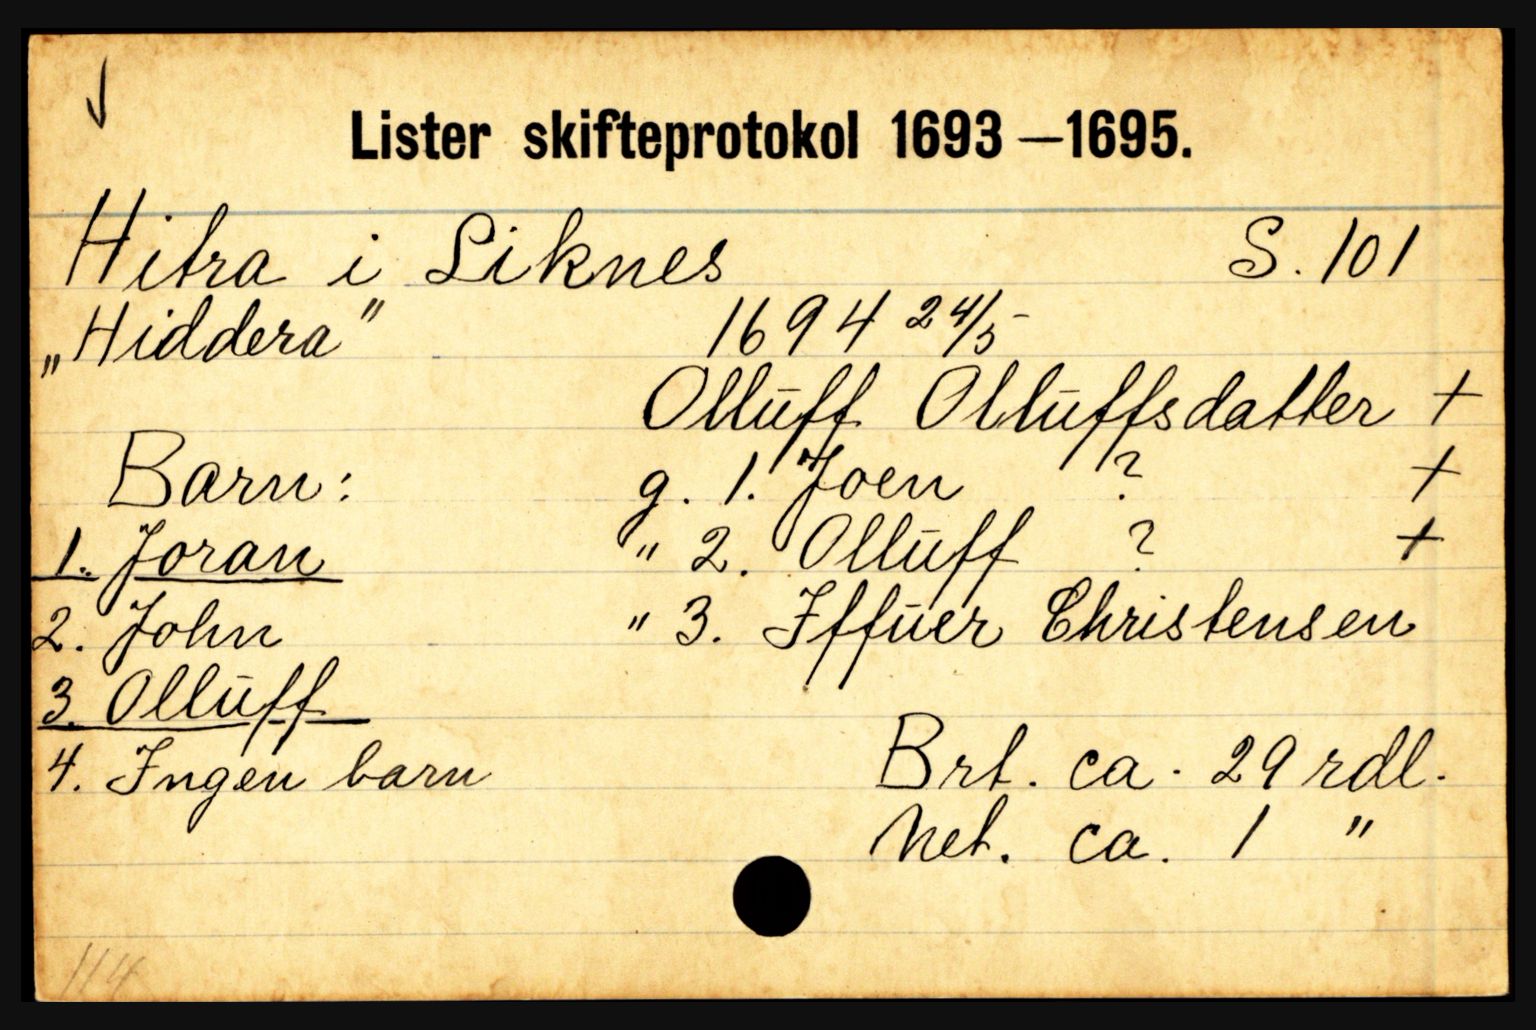 Lister skifteprotokol 1693–1695.
Hitra i Liknes S. 101
„Hiddera" 1694 24/5
Olluff Olluffsdatter +
Barn: g. 1. Joen ? +
1. Joran " 2. Olluff ? +
2. John " 3. Iffuer Christensen
3. Olluff
4. Ingen barn Brt. ca. 29 rdl.
Net. ca. 1 "
114